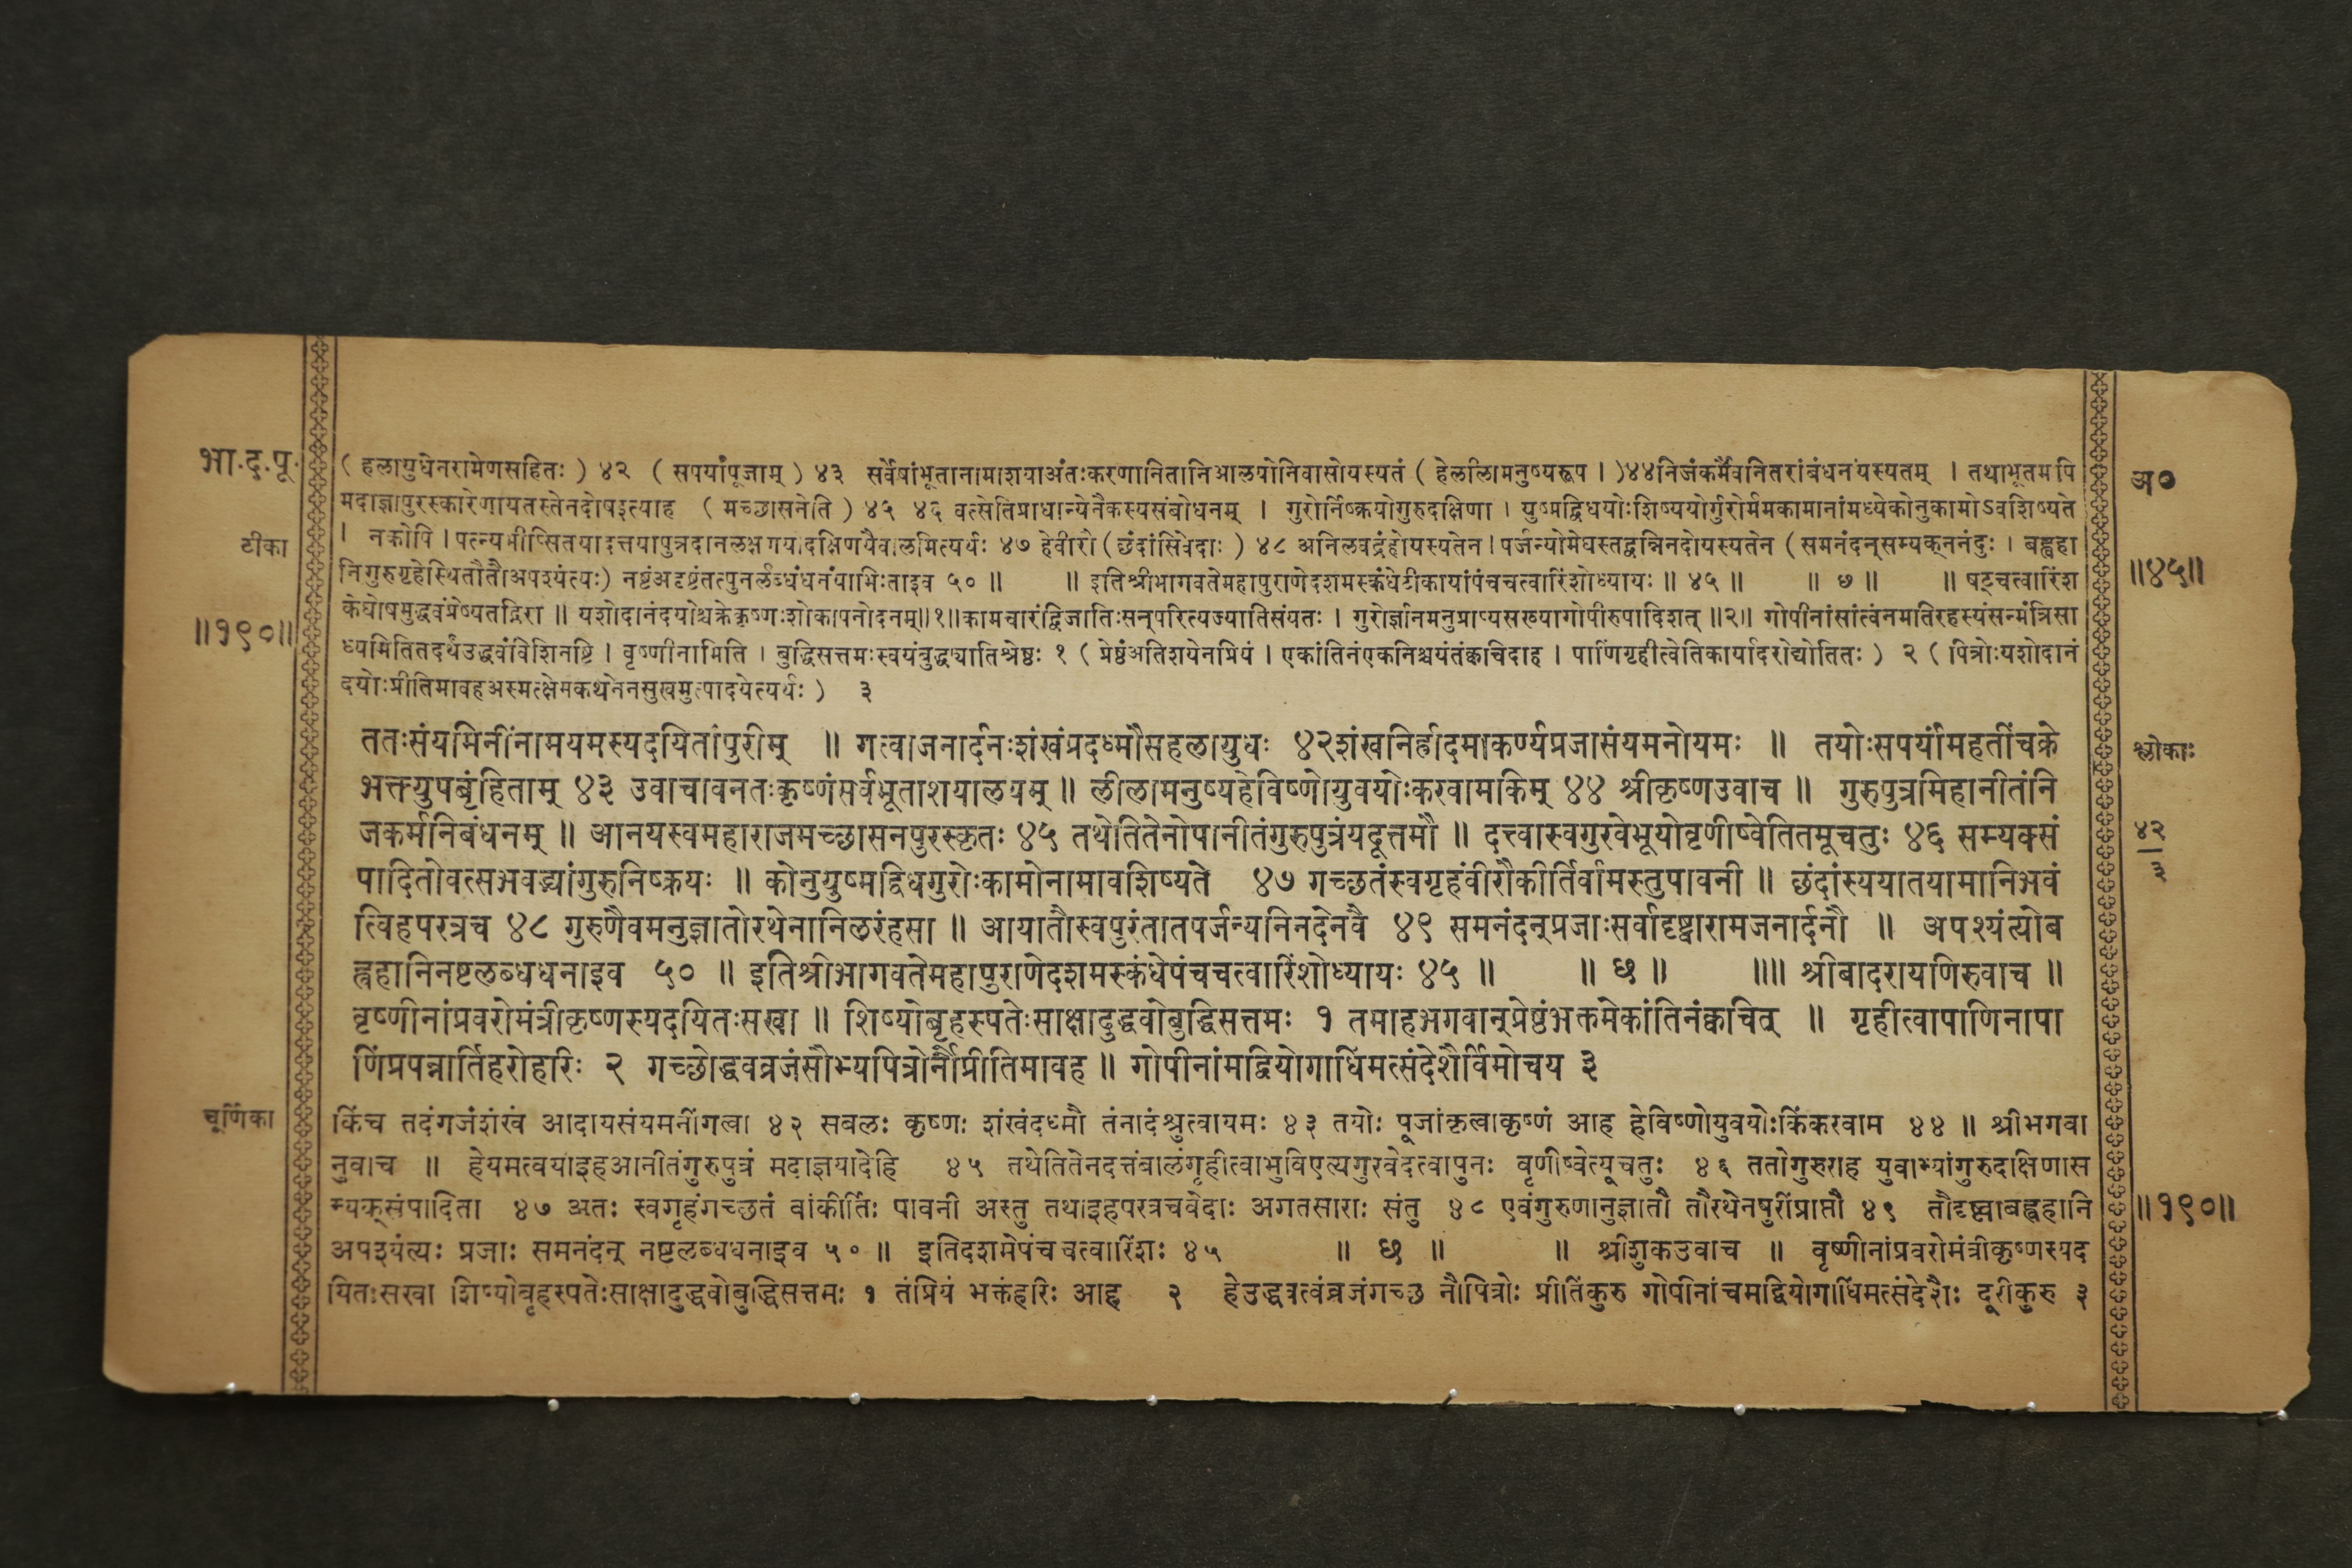 भा.द.पू.
(हलायुधेनरामेणसहितः) ४२ (सपर्यांपूजाम्) ४३ सर्वेषांभूतानामाशयाअंतःकरणानितानिआलयोनिवासोयस्यतं (हेलीलामनुष्यरूप।)४४निजंकर्मैवनितरांबंधनंयस्यतम् । तथाभूतमपि
अ०
मदाज्ञापुरस्कारेणायतस्तेनदोषइत्याह (मच्छासनेति) ४५ ४६ वत्सेतिप्राधान्येनैकस्यसंबोधनम् । गुरोर्निष्क्रयोगुरुदक्षिणा । युष्मद्विधयोःशिष्ययोर्गुरोर्ममकामानांमध्येकोनुकामोऽवशिष्यते
टीका
। नकोपि । पत्न्यभीप्सितयादत्तयापुत्रदानलक्षणयादक्षिणयैवालमित्यर्थः ४७ हेवीरौ (छंदांसिवेदाः) ४८ अनिलवद्रंहोयस्यतेन । पर्जन्योमेघस्तद्वन्निनदोयस्यतेन (समनंदन्सम्यक्ननंदुः । बह्वहा
निगुरुगृहेस्थितौतौअपश्यंत्यः) नष्टंअदृष्टंतत्पुनर्लब्धंधनंयाभिःताइव ५० ॥ ॥ इतिश्रीभागवतेमहापुराणेदशमस्कंधेटीकायांपंचचत्वारिंशोध्यायः ॥ ४५ ॥ ॥ छ ॥ ॥ षट्चत्वारिंश
॥४५॥
केघोषमुद्धवंप्रेष्यतद्गिरा ॥ यशोदानंदयोश्चक्रेकृष्णःशोकापनोदनम्॥१॥कामचारंद्विजातिःसन्परित्यज्यातिसंयतः । गुरोर्ज्ञानमनुप्राप्यसख्यागोपीरुपादिशत् ॥२॥ गोपीनांसांत्वनमतिरहस्यंसन्मंत्रिसा
॥१९०॥
ध्यमितितदर्थंउद्धवंविशिनष्टि । वृष्णीनामिति । बुद्धिसत्तमःस्वयंबुद्ध्यातिश्रेष्ठः १ (प्रेष्ठंअतिशयेनप्रियं । एकांतिनंएकनिश्चयंतंक्वचिदाह । पाणिंगृहीत्वेतिकार्यादरोद्योतितः) २ (पित्रोःयशोदानं
दयोःप्रीतिमावहअस्मत्क्षेमकथनेनसुखमुत्पादयेत्यर्थः) ३
ततःसंयमिनींनामयमस्यदयितांपुरीम् ॥ गत्वाजनार्दनःशंखंप्रदध्मौसहलायुधः ४२शंखनिर्ह्रादमाकर्ण्यप्रजासंयमनोयमः ॥ तयोःसपर्यांमहतींचक्रे
श्लोकाः
भक्त्युपबृंहिताम् ४३ उवाचावनतःकृष्णंसर्वभूताशयालयम् ॥ लीलामनुष्यहेविष्णोयुवयोःकरवामकिम् ४४ श्रीकृष्णउवाच ॥ गुरुपुत्रमिहानीतंनि
जकर्मनिबंधनम् ॥ आनयस्वमहाराजमच्छासनपुरस्कृतः ४५ तथेतितेनोपानीतंगुरुपुत्रंयदूत्तमौ ॥ दत्त्वास्वगुरवेभूयोवृणीष्वेतितमूचतुः ४६ सम्यक्सं
४२
३
पादितोवत्सभवद्भ्यांगुरुनिष्क्रयः ॥ कोनुयुष्मद्विधगुरोःकामोनामावशिष्यते ४७ गच्छतंस्वगृहंवीरौकीर्तिर्वामस्तुपावनी ॥ छंदांस्ययातयामानिभवं
त्विहपरत्रच ४८ गुरुणैवमनुज्ञातोरथेनानिलरंहसा ॥ आयातौस्वपुरंतातपर्जन्यनिनदेनवै ४९ समनंदन्प्रजाःसर्वादृष्ट्वारामजनार्दनौ ॥ अपश्यंत्योब
ह्वहानिनष्टलब्धधनाइव ५० ॥ इतिश्रीभागवतेमहापुराणेदशमस्कंधेपंचचत्वारिंशोध्यायः ४५ ॥ ॥ छ ॥ ॥॥ श्रीबादरायणिरुवाच ॥
वृष्णीनांप्रवरोमंत्रीकृष्णस्यदयितःसखा ॥ शिष्योबृहस्पतेःसाक्षादुद्धवोबुद्धिसत्तमः १ तमाहभगवान्प्रेष्ठंभक्तमेकांतिनंक्वचित् ॥ गृहीत्वापाणिनापा
णिंप्रपन्नार्तिहरोहरिः २ गच्छोद्धवव्रजंसौम्यपित्रोर्नौप्रीतिमावह ॥ गोपीनांमद्वियोगाधिंमत्संदेशैर्विमोचय ३
चूर्णिका
किंच तदंगजंशंखं आदायसंयमनींगत्वा ४२ सबलः कृष्णः शंखंदध्मौ तंनादंश्रुत्वायमः ४३ तयोः पूजांकृत्वाकृष्णं आह हेविष्णोयुवयोःकिंकरवाम ४४ ॥ श्रीभगवा
नुवाच ॥ हेयमत्वयाइहआनीतंगुरुपुत्रं मदाज्ञयादेहि ४५ तथेतितेनदत्तंबालंगृहीत्वाभुविएत्यगुरवेदत्वापुनः वृणीष्वेत्यूचतुः ४६ ततोगुरुराह युवाभ्यांगुरुदक्षिणास
म्यक्संपादिता ४७ अतः स्वगृहंगच्छतं वांकीर्तिः पावनी अस्तु तथाइहपरत्रचवेदाः अगतसाराः संतु ४८ एवंगुरुणानुज्ञातौ तौरथेनपुरींप्राप्तौ ४९ तौदृष्ट्वाबह्वहानि
॥१९०॥
अपश्यंत्यः प्रजाः समनंदन् नष्टलब्धधनाइव ५० ॥ इतिदशमेपंचचत्वारिंशः ४५ ॥ छ ॥ ॥ श्रीशुकउवाच ॥ वृष्णीनांप्रवरोमंत्रीकृष्णस्यद
यितःसखा शिष्योबृहस्पतेःसाक्षादुद्धवोबुद्धिसत्तमः १ तंप्रियं भक्तंहरिः आह २ हेउद्धवत्वंव्रजंगच्छ नौपित्रोः प्रीतिंकुरु गोपीनांचमद्वियोगाधिंमत्संदेशैः दूरीकुरु ३